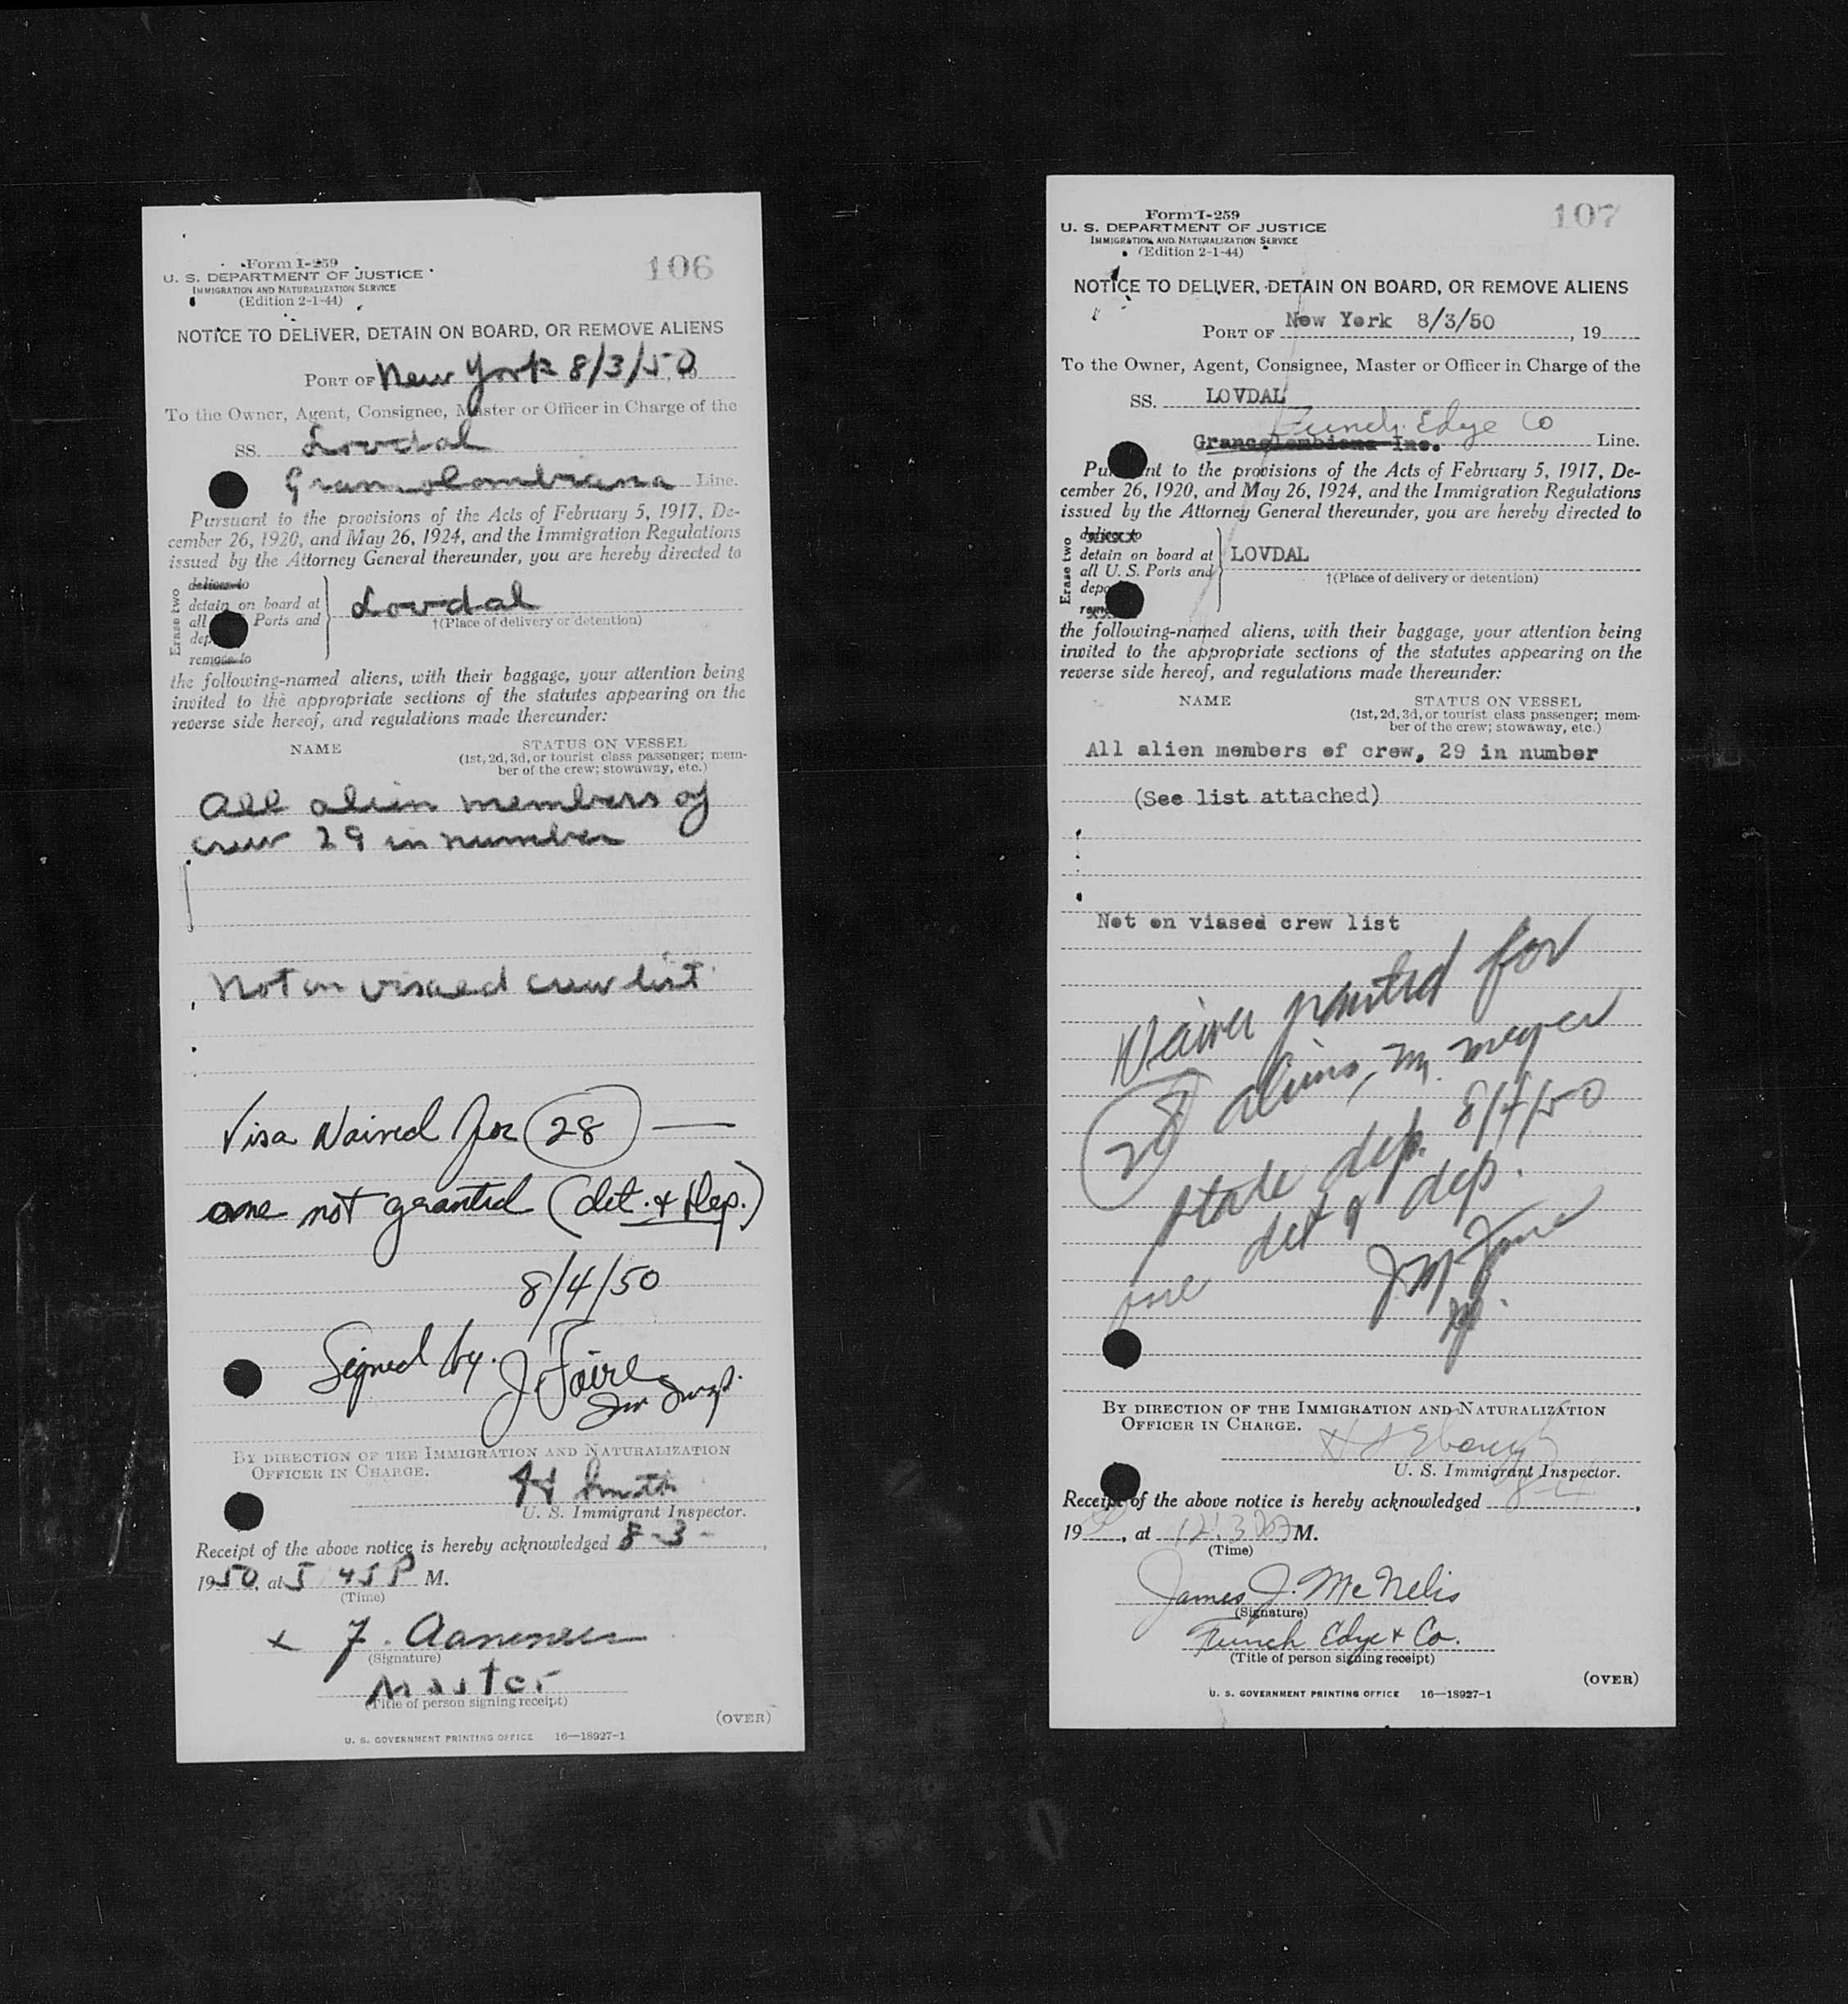 Form I-259
U. S. DEPARTMENT OF JUSTICE
IMMIGRATION AND NATURALIZATION SERVICE
(Edition 2-1-44)
106
NOTICE TO DELIVER, DETAIN ON BOARD, OR REMOVE ALIENS
PORT OF New York 8/3/50, 19
To the Owner, Agent, Consignee, Master or Officer in Charge of the
SS. Lovdal
Grancolombiana Line.
Pursuant to the provisions of the Acts of February 5, 1917, De-
cember 26, 1920, and May 26, 1924, and the Immigration Regulations
issued by the Attorney General thereunder, you are hereby directed to
Erase two
deliver to
detain on board at
all Ports and
dep
remove to
Lovdal
†(Place of delivery or detention)
the following-named aliens, with their baggage, your attention being
invited to the appropriate sections of the statutes appearing on the
reverse side hereof, and regulations made thereunder:
NAME
STATUS ON VESSEL
(1st, 2d, 3d, or tourist class passenger; mem-
ber of the crew; stowaway, etc.)
All alien members of
crew 29 in number
Not on visaed crew list
Visa Waived for 28 —
one not granted (det. & Dep.)
8/4/50
Signed by. J Faire
Imm Insp.
BY DIRECTION OF THE IMMIGRATION AND NATURALIZATION
OFFICER IN CHARGE.
Smith
U. S. Immigrant Inspector.
Receipt of the above notice is hereby acknowledged 8-3-,
1950, at 5 45 P M.
(Time)
x F.
(Signature)
Master
(Title of person signing receipt)
(OVER)
U. S. GOVERNMENT PRINTING OFFICE 16—18927-1
Form I-259
U. S. DEPARTMENT OF JUSTICE
IMMIGRATION AND NATURALIZATION SERVICE
(Edition 2-1-44)
107
NOTICE TO DELIVER, DETAIN ON BOARD, OR REMOVE ALIENS
PORT OF New York 8/3/50, 19
To the Owner, Agent, Consignee, Master or Officer in Charge of the
SS. LOVDAL
Funch Edye Co
Grancolombiana Inc. Line.
Pu nt to the provisions of the Acts of February 5, 1917, De-
cember 26, 1920, and May 26, 1924, and the Immigration Regulations
issued by the Attorney General thereunder, you are hereby directed to
Erase two
deliver to
detain on board at
all U. S. Ports and
depo
remo
LOVDAL
†(Place of delivery or detention)
the following-named aliens, with their baggage, your attention being
invited to the appropriate sections of the statutes appearing on the
reverse side hereof, and regulations made thereunder:
NAME
STATUS ON VESSEL
(1st, 2d, 3d, or tourist class passenger; mem-
ber of the crew; stowaway, etc.)
All alien members of crew, 29 in number
(See list attached)
Not on viased crew list
Waiver granted for
28 aliens, M. Meyer
State dep. 8/4/50
one det & dep.
BY DIRECTION OF THE IMMIGRATION AND NATURALIZATION
OFFICER IN CHARGE.
U. S. Immigrant Inspector.
Receipt of the above notice is hereby acknowledged ,
19 , at M.
(Time)
James J. McNelis
(Signature)
Funch Edye & Co.
(Title of person signing receipt)
(OVER)
U. S. GOVERNMENT PRINTING OFFICE 16—18927-1